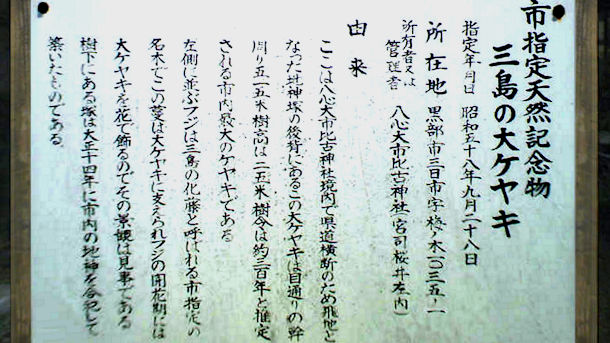 市指定天然記念物
三島の大ケヤキ
指定年月日 昭和五十八年九月二十八日
所在地 黒部市三日市字桜ノ木一〇三五ー一
所有者又は
管理者 八心大市比古神社(宮司桜井左内)
由来
ここは八心大市比古神社境内で県道横断のため飛地と
なった地神塚の後背にあるこの大ケヤキは目通りの幹
周り五・五米樹高は二五米樹令は約三百年と推定
される市内最大のケヤキである
左側に並ぶフジは三島の化藤と呼ばれる市指定の
名木でこの蔓は大ケヤキに支えられフジの開花期には
大ケヤキを花で飾るのでその景観は見事である
樹下にある塚は大正十四年に市内の地神を合祀して
築いたものである。